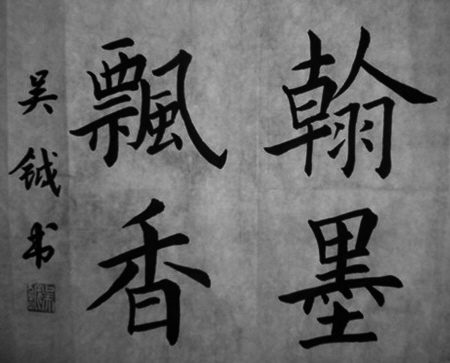 翰墨
飄香
吴钺书